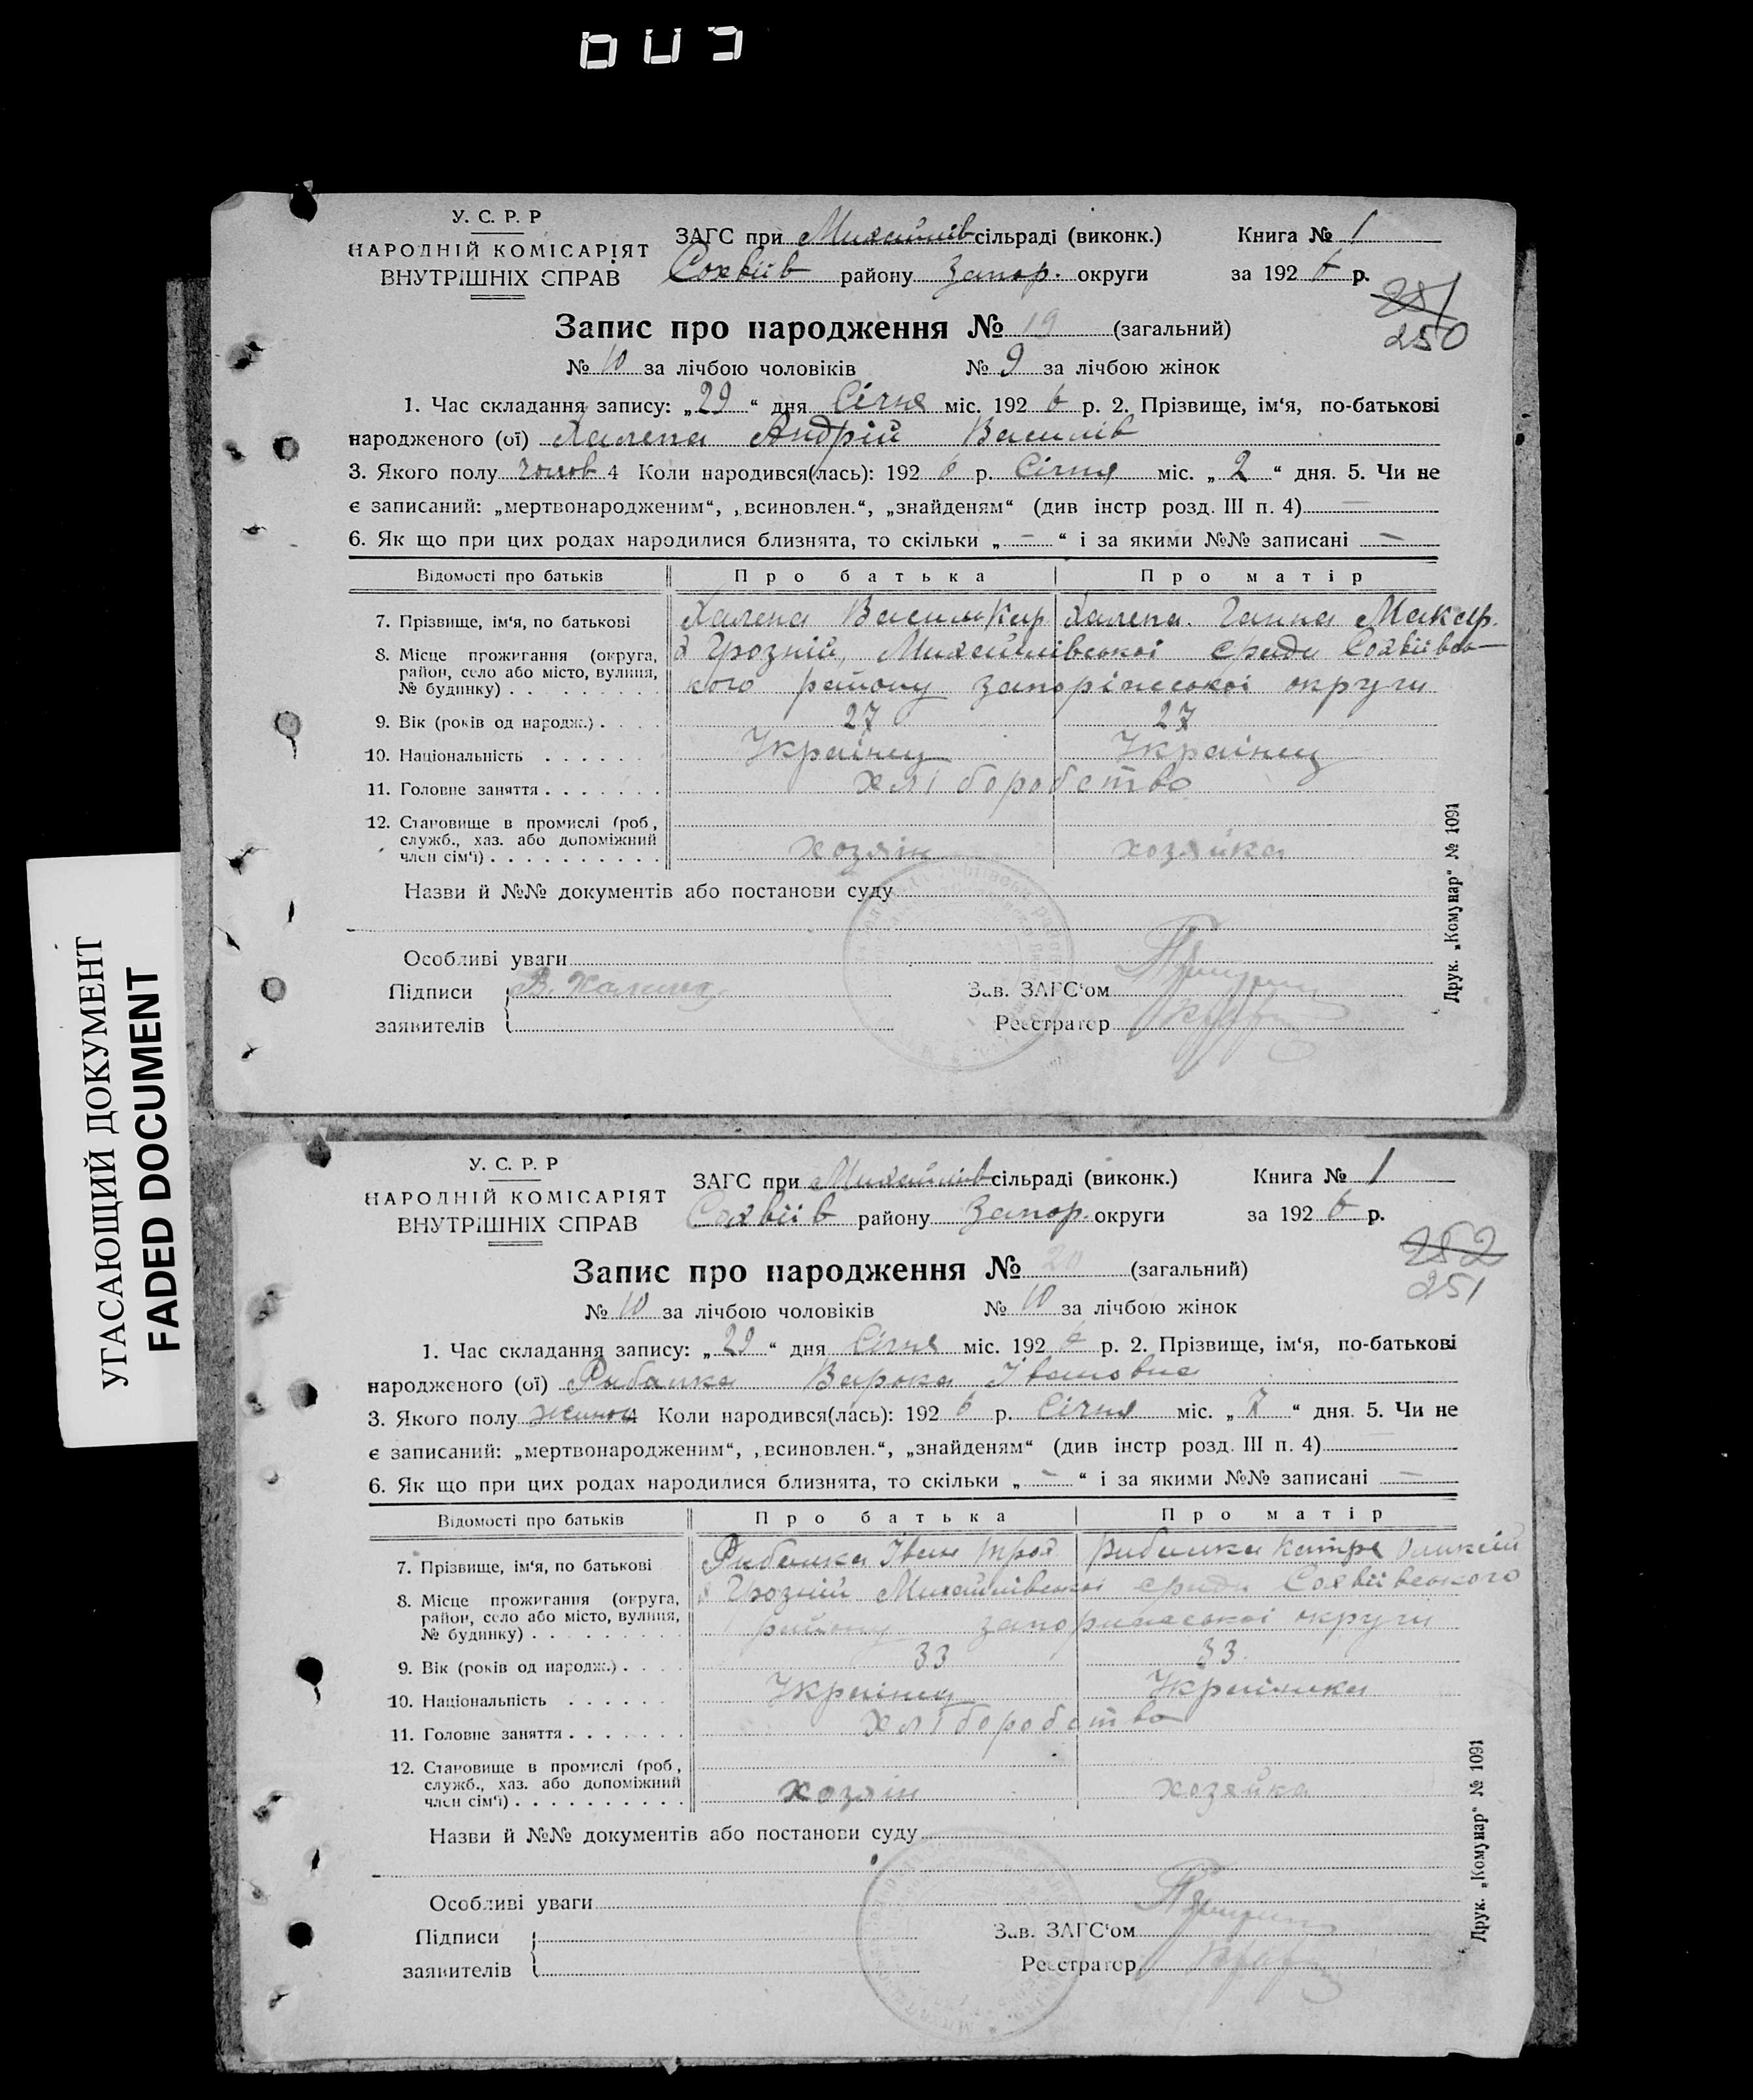 УГАСАЮЩИЙ ДОКУМЕНТ
FADED DOCUMENT
У. С. Р. Р
НАРОДНІЙ КОМІСАРІЯТ
ВНУТРІШНІХ СПРАВ
ЗАГС при Михайлів сільраді (виконк.) Книга № 1
Софвіїв району Запор. округи за 192 6 р.
251
250
Запис про народження № 19 (загальний)
№ 10 за лічбою чоловіків № 9 за лічбою жінок
1. Час складання запису: „ 29 “ дня Січня міс. 192 6 р. 2. Прізвище, ім‘я, по-батькові
народженого (ої) Халепа Андрій Василів
3. Якого полу чолов 4 Коли народився(лась): 192 6 р. Січня міс. „ 2 “ дня. 5. Чи не
є записаний: „мертвонародженим“, „всиновлен.“, „знайденям“ (див інстр розд. III п. 4) —
6. Як що при цих родах народилися близнята, то скільки „ — “ і за якими №№ записані —
Відомості про батьків Про батька Про матір
7. Прізвище, ім‘я, по батькові Халепа Васил Кир Халепа. Ганна Макар.
8. Місце прожигания (округа, район, село або місто, вулиця, № будинку) х Грозній, Михайлівської сради Софвіївсь-
кого району запоріжської округи
9. Вік (років од народж.) 27 27
10. Національність Українец Українец
11. Головне заняття хліборобство
12. Становище в промислі (роб, служб., хаз. або допоміжний член сім‘ї) хозяін хозяйка
Назви й №№ документів або постанови суду
Особливі уваги
Підписи В. Халепа Зав. ЗАГС‘ом
заявителів Реєстратор
Друк. „Комунар“ № 1091
У. С. Р. Р
НАРОДНІЙ КОМІСАРІЯТ
ВНУТРІШНІХ СПРАВ
ЗАГС при Михайлів сільраді (виконк.) Книга № 1
Софвіїв району Запор. округи за 192 6 р.
252
251
Запис про народження № 20 (загальний)
№ 10 за лічбою чоловіків № 10 за лічбою жінок
1. Час складання запису: „ 29 “ дня Січня міс. 192 6 р. 2. Прізвище, ім‘я, по-батькові
народженого (ої) Рибалка Варока Івановна
3. Якого полу жиноч Коли народився(лась): 192 6 р. Січня міс. „ 7 “ дня. 5. Чи не
є записаний: „мертвонародженим“, „всиновлен.“, „знайденям“ (див інстр розд. III п. 4)
6. Як що при цих родах народилися близнята, то скільки „ — “ і за якими №№ записані —
Відомості про батьків Про батька Про матір
7. Прізвище, ім‘я, по батькові Рибалка Іван Троф Рибалка Катря Оликсій
8. Місце прожигания (округа, район, село або місто, вулиця, № будинку) х Грозній Михайлівської сради Софвіівського
району запорижської округи
9. Вік (років од народж.) 33 33
10. Національність Українец Українка
11. Головне заняття хліборобство
12. Становище в промислі (роб, служб., хаз. або допоміжний член сім‘ї) хозяін хозяйка
Назви й №№ документів або постанови суду
Особливі уваги
Підписи Зав. ЗАГС‘ом
заявителів Реєстратор
Друк. „Комунар“ № 1091